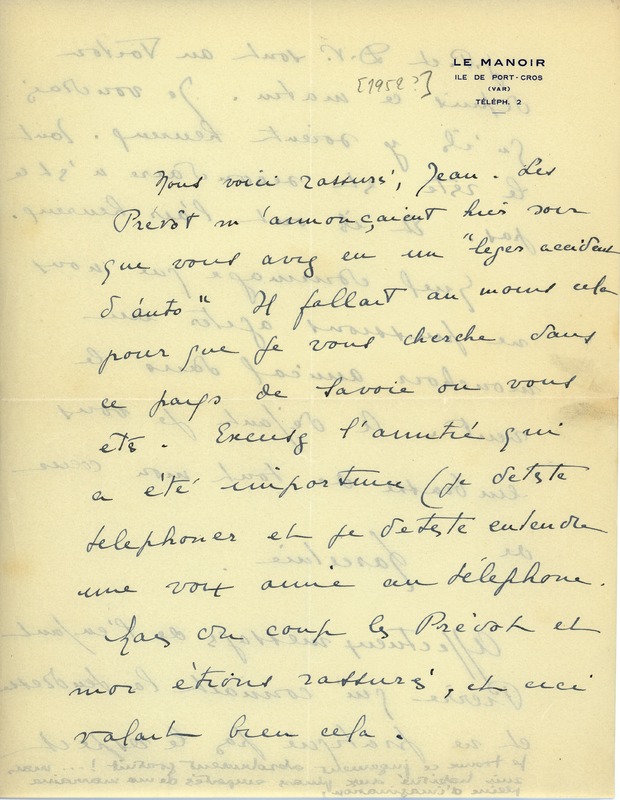 LE MANOIR
ILE DE PORT-CROS
(VAR)
TÉLÉPH. 2
[1952?]
Nous voici rassurés, Jean. Les
Prévôt m'annonçaient hier soir
que vous aviez eu un "leger accident
d'auto" Il fallait au moins cela
pour que je vous cherche dans
ce pays de Savoie ou vous
etes. Excusez l'amitié qui
a été importune (je deteste
telephoner et je deteste entendre
une voix amie au téléphone.
Mais du coup les Prévôt et
moi étions rassurés, et ceci
valait bien cela.